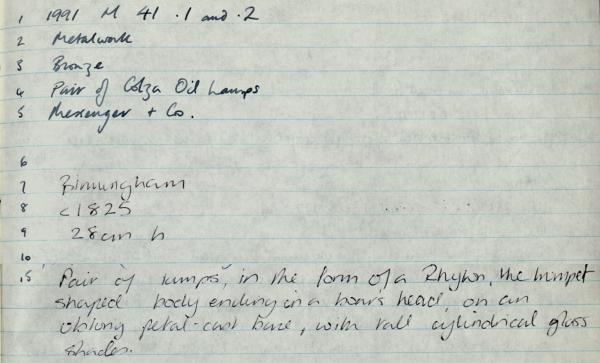 1 1991 M 41 .1 and .2
2 Metalwork
3 Bronze
4 Pair of Colza Oil Lamps
5 Messenger + Co.
6
7 Birmingham
8 c1825
9 28cm h
10
15 Pair of lamps, in the form of a Rhyton, the trumpet
shaped body ending in a boars head, on an
oblong petal-cast base, with tall cylindrical glass
shades.